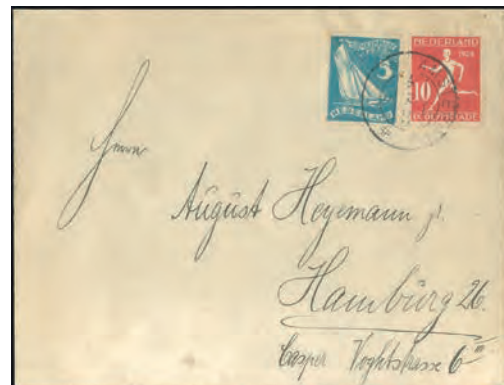 5
NEDERLAND
NEDERLAND
1928
10
OLYMPIADE
Herrn
August Heyemann jr.
Hamburg 26.
Casper Voghtstrasse 6 III